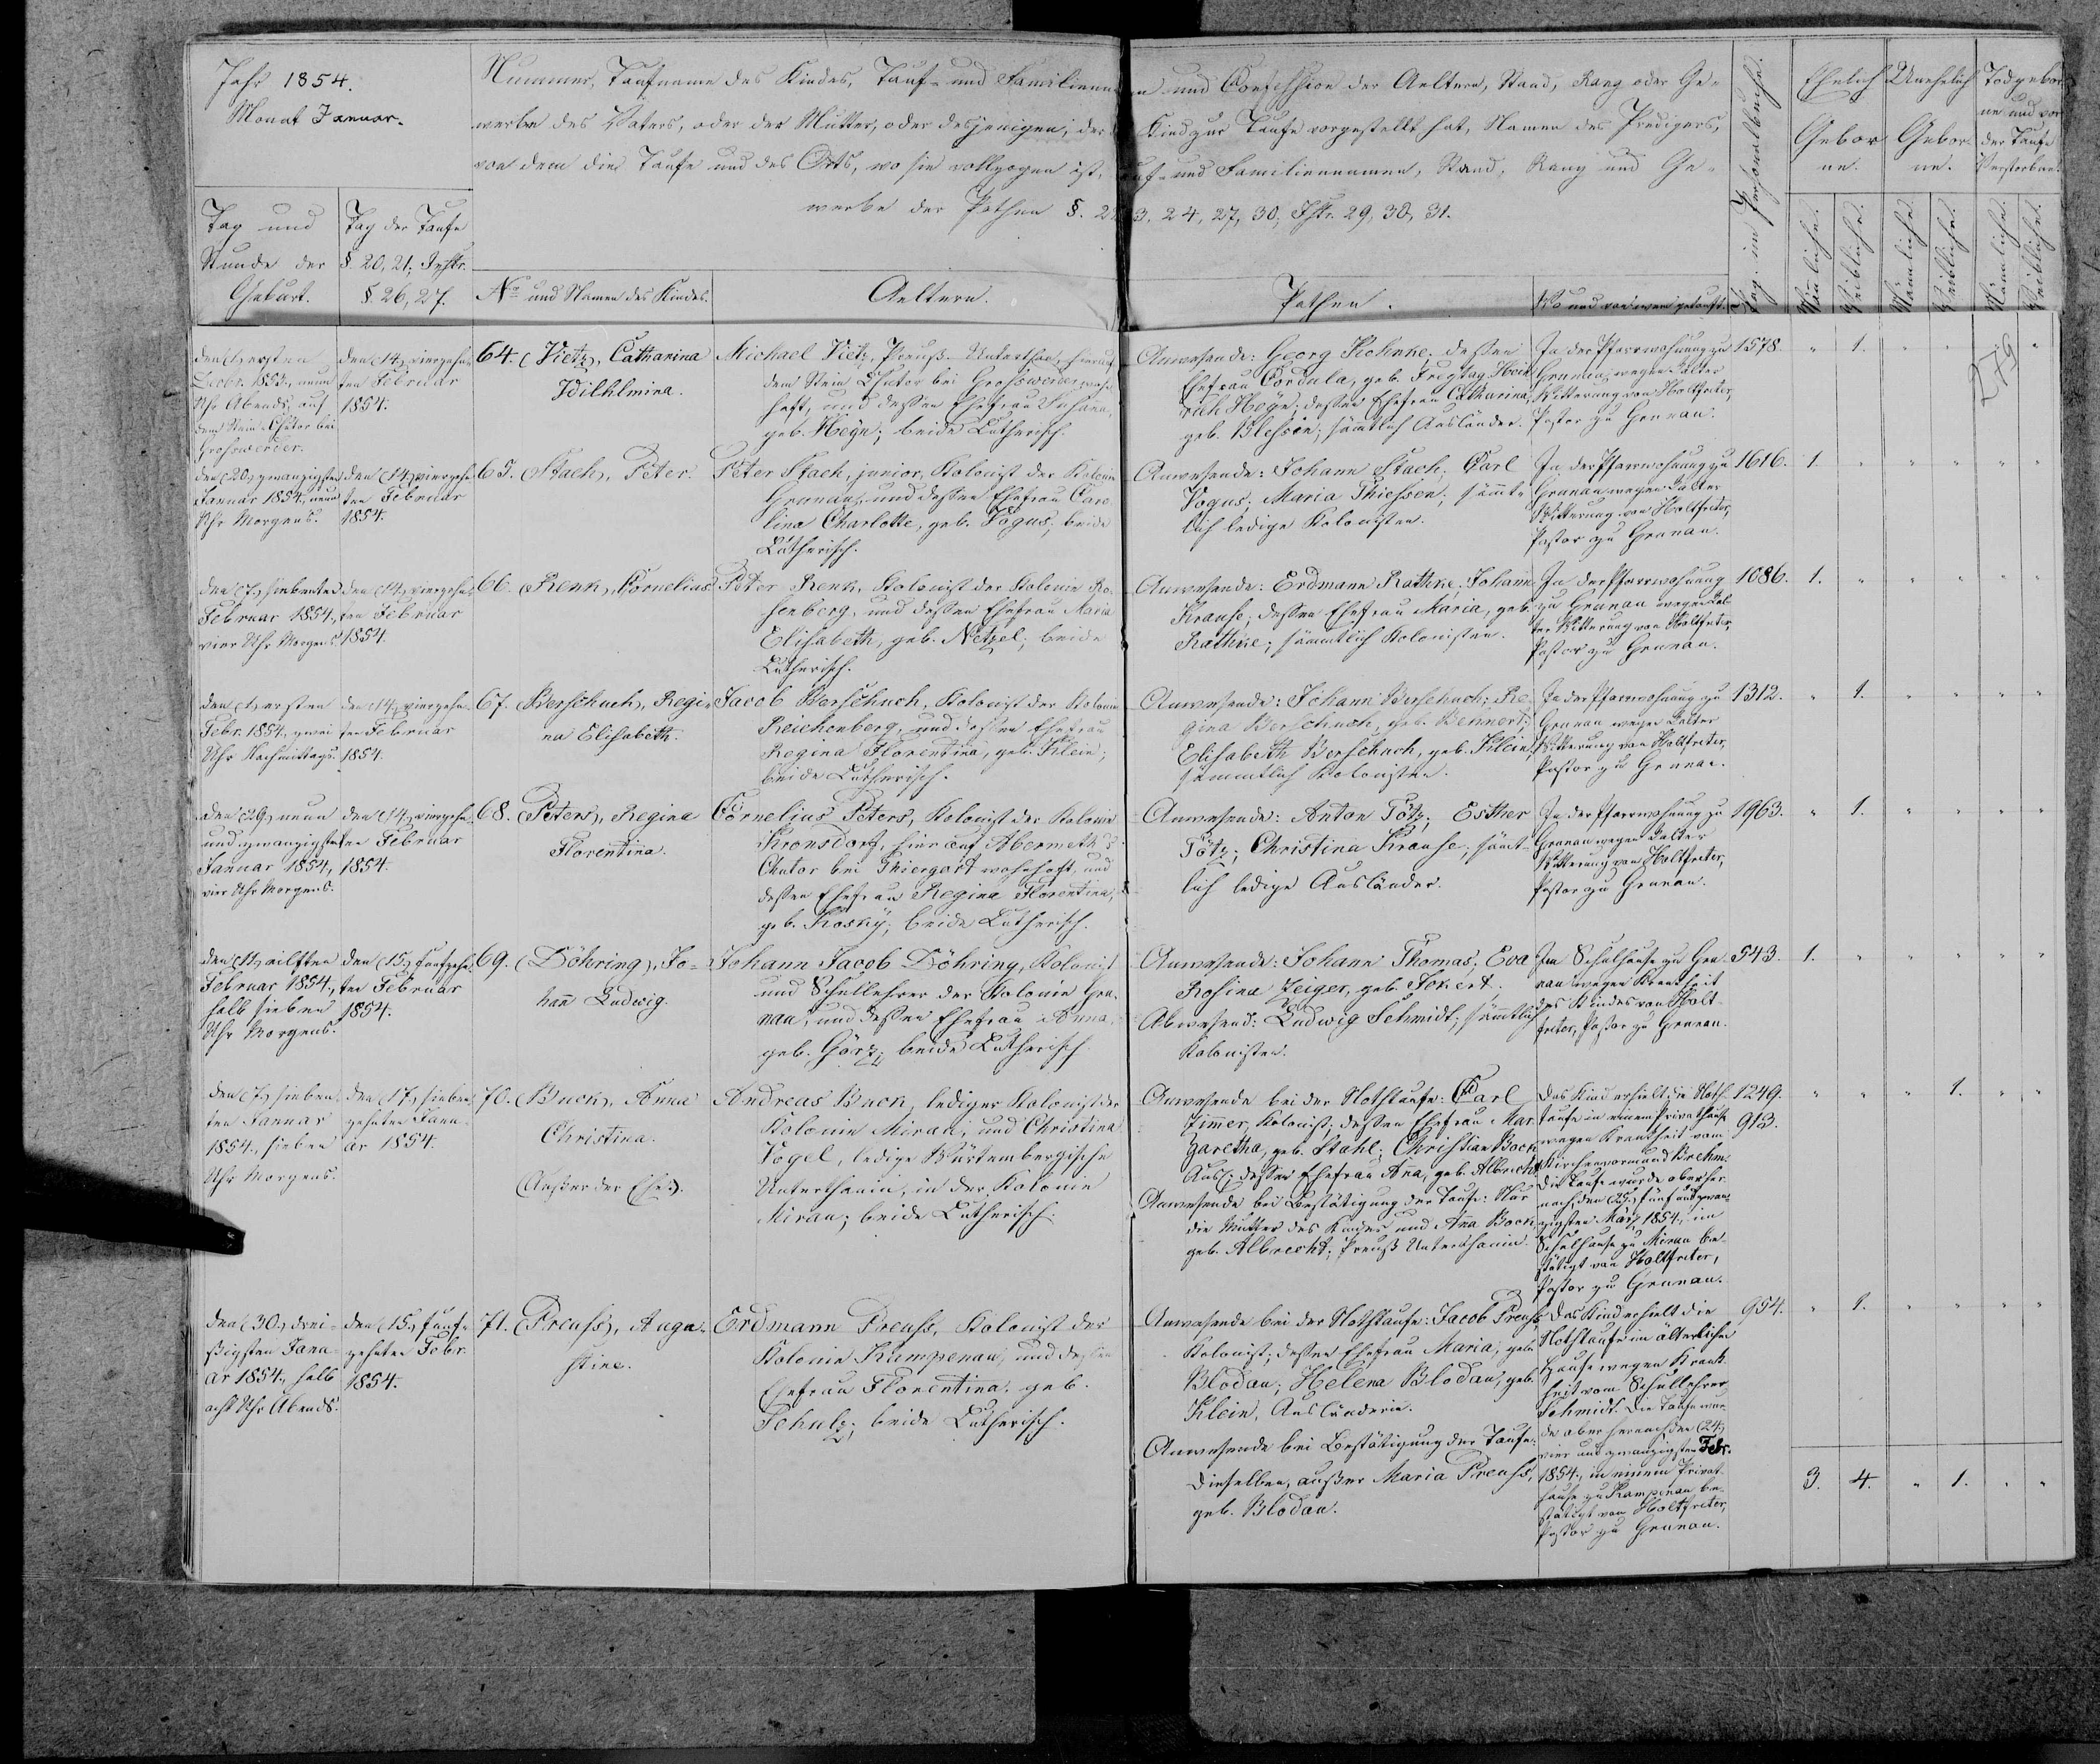 Jahr 1854.
Monat Januar.
Tag und
Stunde der
Geburt.
Tag der Taufe
§. 20, 21; Instr.
§. 26, 27.
Nummer, Taufname des Kindes, Tauf- und Familienna
werbe des Vaters, oder der Mutter, oder desjenigen, der
von dem die Taufe und des Orts, wo sie vollzogen ist,
werbe der Pathen §. 2
No und Namen des Kindes.
Aeltern.
n und Confession der Aeltern, Stand, Rang oder Ge-
Kind zur Taufe vorgestellt hat, Namen des Predigers,
auf- und Familiennamen, Stand, Rang und Ge-
3, 24, 27, 30; Istr. 29, 30, 31.
Pathen.
Wo und von wem getauft.
Pag. im Personalbuche.
Ehelich
Gebor
ne.
Unehelich
Gebor-
ne.
Todgebor
ne und vor
der Taufe
Verstorbene.
Männliche.
Weibliche.
Männliche.
Weibliche.
Männliche.
Weibliche.
279
den (1) ersten
Decbr. 1853, neun
Uhr Abends, auf
dem Stein-Chutor bei
Grosswerder.
den (14) vierzehn
ten Februar
1854.
64. (Vietz), Catharina
Wilhelmina.
Michael Vietz, Preuß. Unterthan, hier auf
dem Stein Chutor bei Grosswerder wohn
haft, und dessen Ehefrau Susanna,
geb. Heyn; beide Lutherisch.
Anwesende: Georg Kohnke; dessen
Ehefrau Cordula, geb. Freytag; Hein
rich Heyn; dessen Ehefrau Catharina,
geb. Klessen; sämtlich Ausländer.
In der Pfarrwohnung zu
Grunau, wegen kalter
Witterung von Holtfreter,
Pastor zu Grunau.
1578. " 1. " " "
den (20) zwanzigsten
Januar 1854, neun
Uhr Morgens.
den (14) vierzehn
ten Februar
1854.
65. (Stach), Peter.
Peter Stach, junior, Kolonist der Kolonie
Grunau, und dessen Ehefrau Caro
lina Charlotte, geb. Vogus; beide
Lutherisch.
Anwesende: Johann Stach; Carl
Vogus; Maria Thiessen; sämt-
lich ledige Kolonisten.
In der Pfarrwohnung zu
Grunau wegen kalter
Witterung von Holtfreter,
Pastor zu Grunau.
1616. 1. " " " " "
den (7) siebenten
Februar 1854,
vier Uhr Morgens.
den (14) vierzehn
ten Februar
1854.
66. (Renk), Cornelius
Peter Renk, Kolonist der Kolonie Ro-
senberg, und dessen Ehefrau Maria
Elisabeth, geb. Netzel; beide
Lutherisch.
Anwesende: Erdmann Rathke; Johann
Krause; dessen Ehefrau Maria, geb.
Rathke; sämmtlich Kolonisten.
In der Pfarrwohnung
zu Grunau wegen kal
ter Witterung von Holtfreter,
Pastor zu Grunau.
1086. 1. " " " " "
den (1) ersten
Febr. 1854, zwei
Uhr Nachmittags.
den (14) vierzehn
ten Februar
1854.
67. (Berschuch), Regi-
na Elisabeth.
Jacob Berschuch, Kolonist der Kolonie
Reichenberg, und dessen Ehefrau
Regina Florentina, geb. Klein;
beide Lutherisch.
Anwesende: Johann Berschuch; Re-
gina Berschuch, geb. Bennert;
Elisabeth Berschuch, geb. Klein;
sämmtlich Kolonisten.
In der Pfarrwohnung zu
Grunau wegen kalter
Witterung von Holtfreter,
Pastor zu Grunau.
1312. " 1. " " " "
den (29) neun
und zwanzigsten
Januar 1854,
vier Uhr Morgens.
den (14) vierzehn
ten Februar
1854.
68. (Peters), Regina
Florentina.
Cornelius Peters, Kolonist der Kolonie
Kronsdorf, hier auf Abermeth's
Chutor bei Thiergart wohnhaft, und
dessen Ehefrau Regina Florentina,
geb. Kosky; beide Lutherisch.
Anwesende: Anton Tötz; Esther
Tötz; Christina Krause; sämt-
lich ledige Ausländer.
In der Pfarrwohnung zu
Grunau wegen kalter
Witterung von Holtfreter,
Pastor zu Grunau.
1963. " 1. " " " "
den (11) eilften
Februar 1854,
halb sieben
Uhr Morgens.
den (15) fünfzehn
ten Februar
1854.
69. (Döhring), Jo-
hann Ludwig.
Johann Jacob Döhring, Kolonist
und Schullehrer der Kolonie Gru-
nau, und dessen Ehefrau Anna,
geb. Görz; beide Lutherisch.
Anwesende: Johann Thomas; Eva
Rosina Zeiger, geb. Sekert.
Abwesend: Ludwig Schmidt; sämtlich
Kolonisten.
Im Schulhause zu Gru
nau wegen Krankheit
des Kindes von Holt-
freter, Pastor zu Grunau.
543. 1. " " " " "
den (7) sieben
ten Januar
1854, sieben
Uhr Morgens.
den (17) sieben
zehnten Janu
ar 1854.
70. (Buck), Anna
Christina.
(Außer der Ehe).
Andreas Buck, lediger Kolonist der
Kolonie Mirau, und Christina
Vogel, ledige Würtembergische
Unterthanin, in der Kolonie
Mirau; beide Lutherisch.
Anwesende bei der Nothtaufe: Carl
Zimmer, Kolonist; dessen Ehefrau Mar
garetha, geb. Stahl; Christian Bock
Ausl; dessen Ehefrau Anna, geb. Albrecht.
Anwesende bei Bestätigung der Taufe: Nur
die Mutter des Kindes und Anna Bock
geb. Albrecht; Preuß. Unterthanin.
Das Kind erhielt die Noth
taufe in einem Privathause
wegen Krankheit vom
Kirchenvormund Brehm.
Die Taufe wurde aber her
nach, den (25) fünf und zwan
zigsten März 1854, im
Schulhause zu Mirau be-
stätigt von Holtfreter,
Pastor zu Grunau.
1249.
913. " " " 1. " "
den (30) drei-
ßigsten Janu-
ar 1854, halb
acht Uhr Abends.
den (15) fünf-
zehnten Febr.
1854.
71. (Preuss), Augu-
stine.
Erdmann Preuss, Kolonist der
Kolonie Kampenau, und dessen
Ehefrau Florentina, geb.
Schulz; beide Lutherisch.
Anwesende bei der Nothtaufe: Jacob Preuss,
Kolonist; dessen Ehefrau Maria, geb.
Blodau; Helena Blodau, geb.
Klein, Ausländerin.
Anwesende bei Bestätigung der Taufe:
Dieselben, außer Maria Preuss,
geb. Blodau.
Das Kind erhielt die
Nothtaufe im älterlichen
Hause wegen Krank-
heit vom Schullehrer
Schmidt. Die Taufe wur
de aber hernach den (24)
vier und zwanzigsten Febr.
1854, in einem Privat-
hause zu Kampenau be-
stätigt von Holtfreter,
Pastor zu Grunau.
954. " 1. " " " "
3. 4. " 1. " "